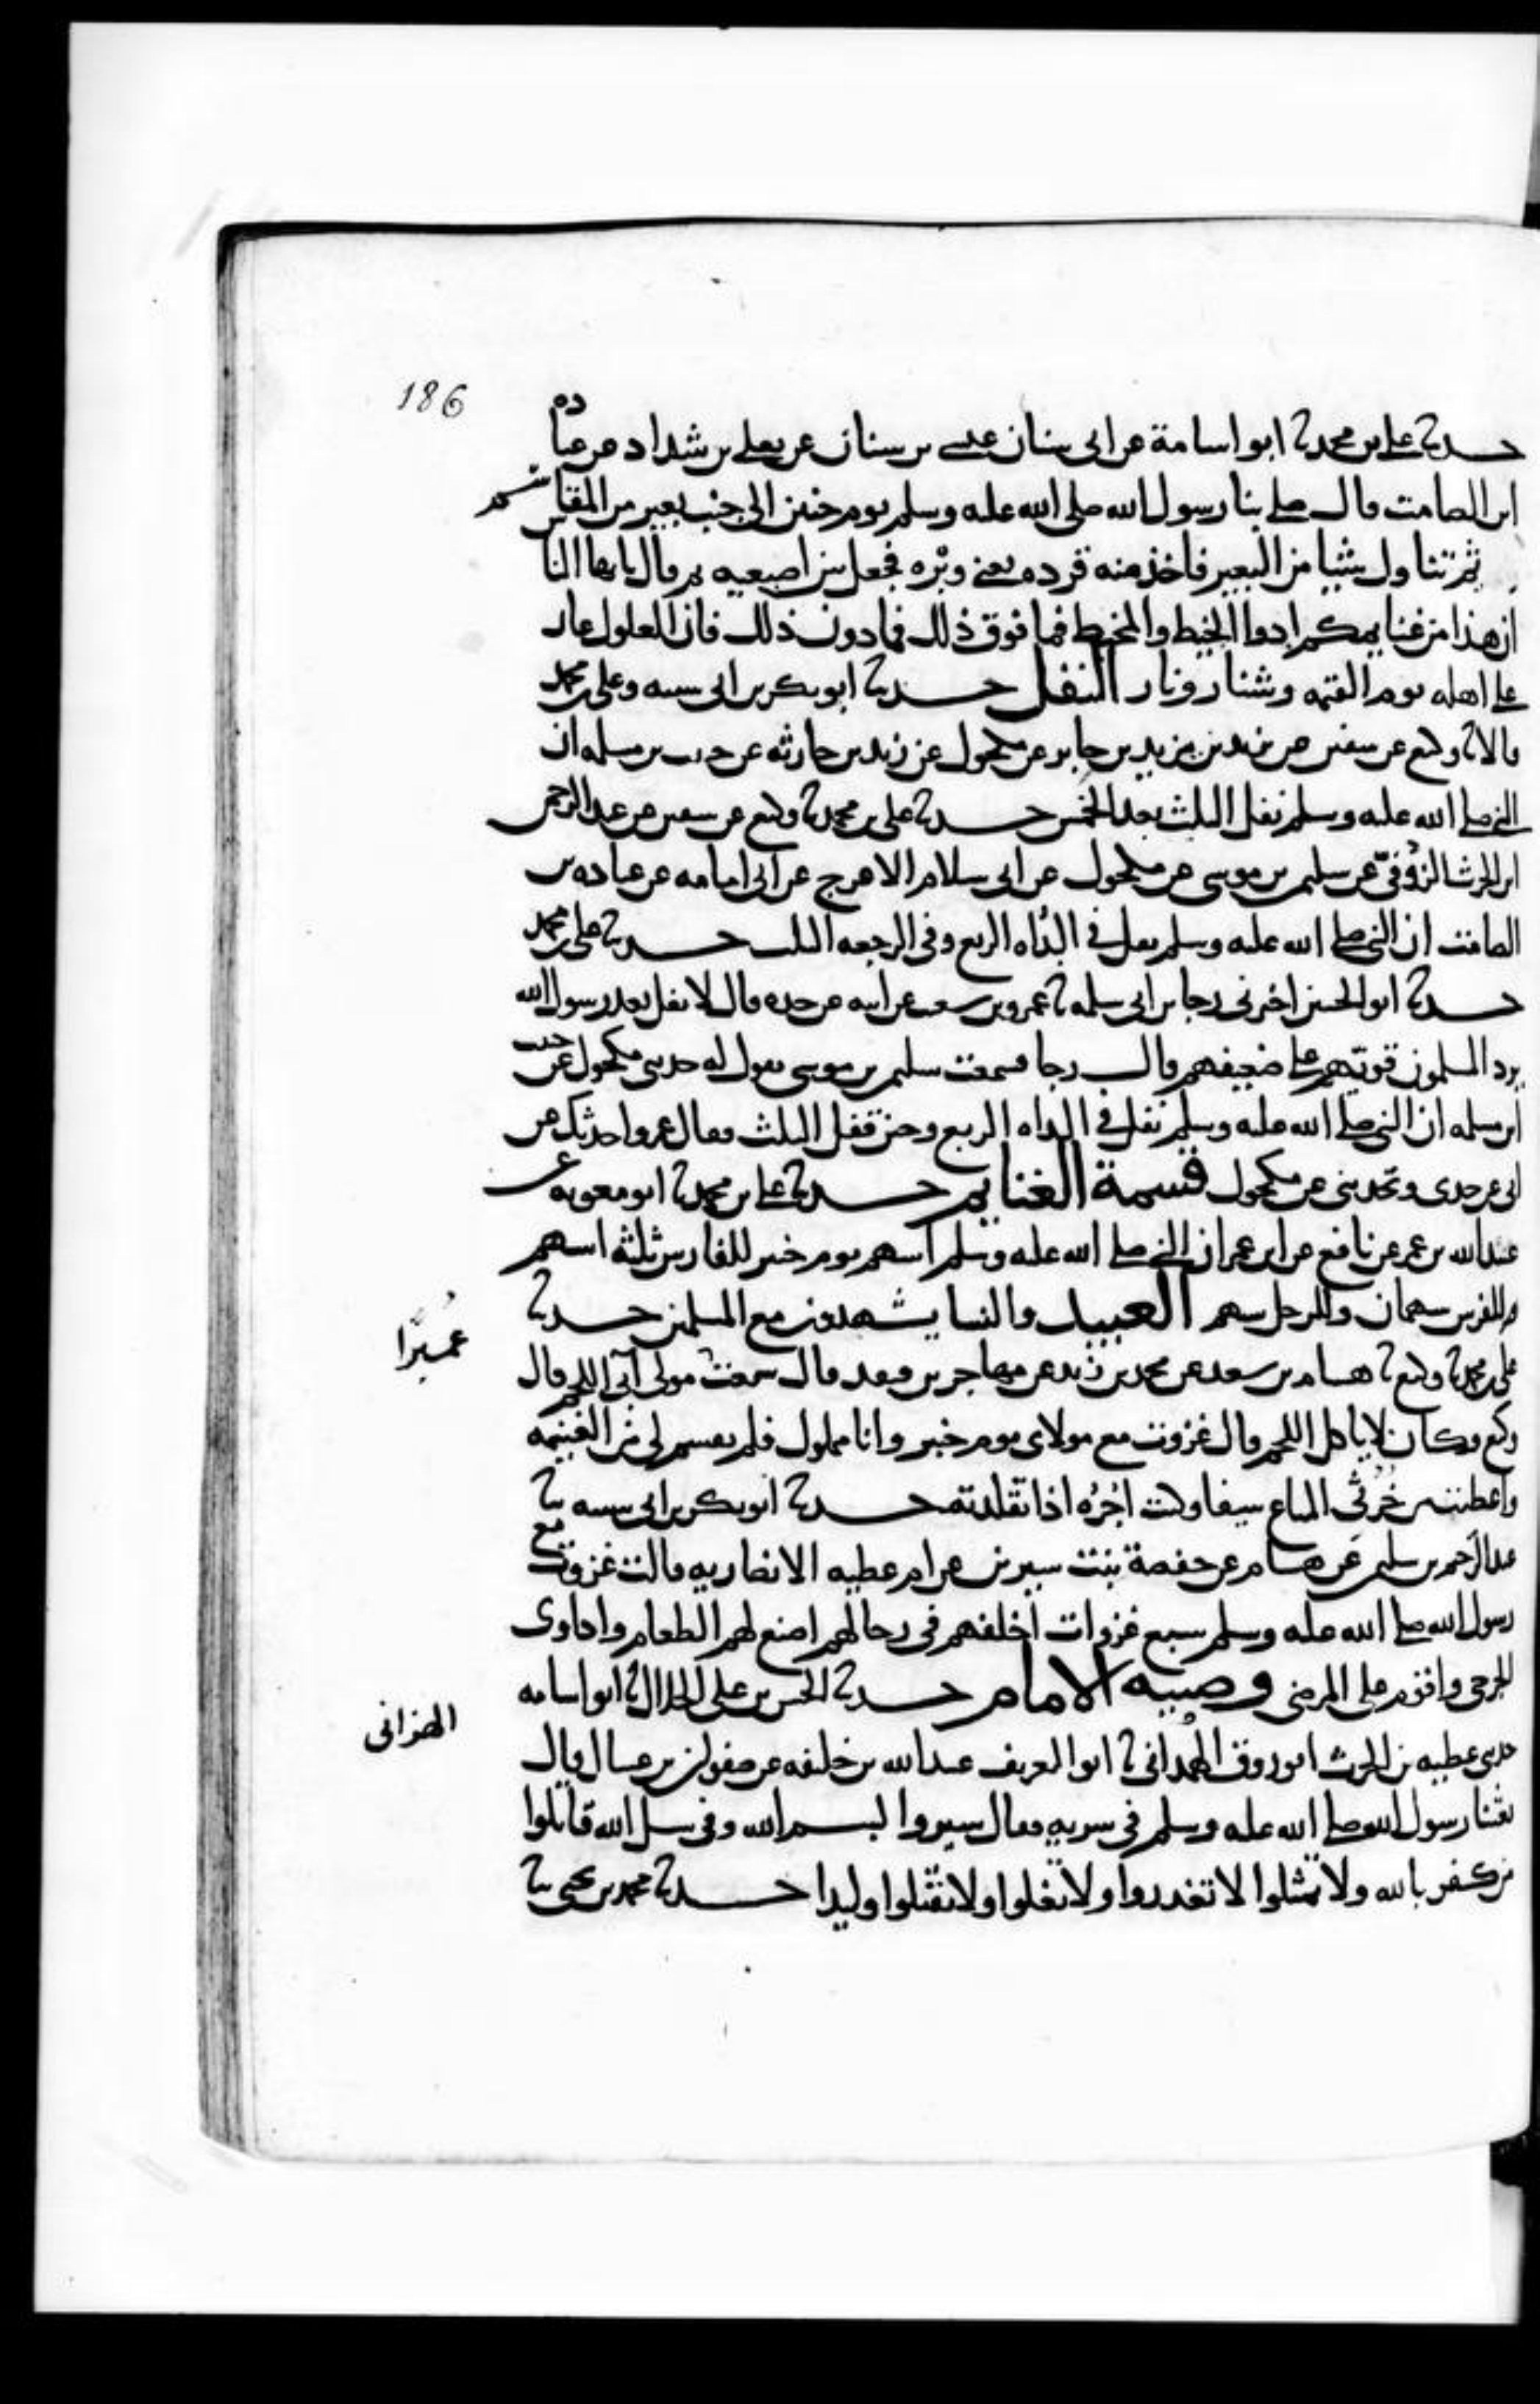 186
حدثنا علي بن محمد ثنا ابو اسامة عن ابي سنان عيسى بن سنان عن يعلى بن شداد عن عبادة
ابن الصامت قال صلى بنا رسول الله صلى الله عليه وسلم يوم حنين الى جنب بعير من المقاسم
ثم تناول شيا من البعير فاخذ منه قرده يعني وبره فجعل بين اصبعيه ثم قال يايها الناس
ان هذا من غنايمكم ادوا الخيط والمخيط فما فوق ذلك فما دون ذلك فان الغلول عار
على اهله يوم القيمه وشنار ونار النفل حدثنا ابو بكر بن ابي شيبه وعلي بن محمد
قالا ثنا وكيع عن سفين عن يزيد بن يزيد بن جابر عن مكحول عن زيد بن حارثه عن حبيب بن مسلمه ان
النبي صلى الله عليه وسلم نفل الثلث بعد الخمس حدثنا علي بن محمد ثنا وكيع عن سفين عن عبد الرحمن
ابن الحرث الزرقي عن سليمن بن موسى عن مكحول عن ابي سلام الاعرج عن ابي امامه عن عباده بن
الصامت ان النبي صلى الله عليه وسلم نفل في البداه الربع وفي الرجعه الثلث حدثنا علي بن محمد
حدثنا ابو الحسين اخبرني رجا بن ابي سلمه ثنا عمرو بن شعيب عن ابيه عن جده قال لا نفل بعد رسول الله
يرد المسلمون قويهم على ضعيفهم قال رجا فسمعت سليمن بن موسى يقول له حدثني مكحول عن حبيب
ابن مسلمه ان النبي صلى الله عليه وسلم نفل في البداه الربع وحين قفل الثلث فقال عمرو احدثك عن
ابي عن جدي وتحدثني عن مكحول قسمة الغنايم حدثنا علي بن محمد ثنا ابو معويه عن
عبيد الله بن عمر عن نافع عن ابن عمر ان النبي صلى الله عليه وسلم اسهم يوم خيبر للفارس ثلثه اسهم
للفرس سهمان وللرجل سهم العبيد والنسا يشهدون مع المسلمين حدثنا
علي بن محمد ثنا وكيع ثنا هشام بن سعد عن محمد بن زيد عن مهاجر بن قنفد قال سمعت مولى آبي اللحم قال
عميرا
وكيع وكان لا ياكل اللحم قال غزوت مع مولاي يوم خيبر وانا مملوك فلم يقسم لي من الغنيمه
واعطيت من خرثي المتاع سيفا وكنت اجره اذا تقلدته حدثنا ابو بكر بن ابي شيبه ثنا
عبد الرحيم بن سليمن عن هشام عن حفصة بنت سيرين عن ام عطيه الانصاريه قالت غزوت مع
رسول الله صلى الله عليه وسلم سبع غزوات اخلفهم في رحالهم اصنع لهم الطعام واداوي
الجرحى واقوم على المرضى وصيه الامام حدثنا الحسن بن علي الخلال ثنا ابو اسامه
حدثني عطيه بن الحرث ابو روق الهمداني ثنا ابو الغريف عبد الله بن خليفه عن صفوان بن عسال قال
الهزاني
بعثنا رسول الله صلى الله عليه وسلم في سريه فقال سيروا بسم الله وفي سبيل الله قاتلوا
من كفر بالله ولا تمثلوا لا تغدروا ولا تغلوا ولا تقتلوا وليدا حدثنا محمد بن يحيى ثنا